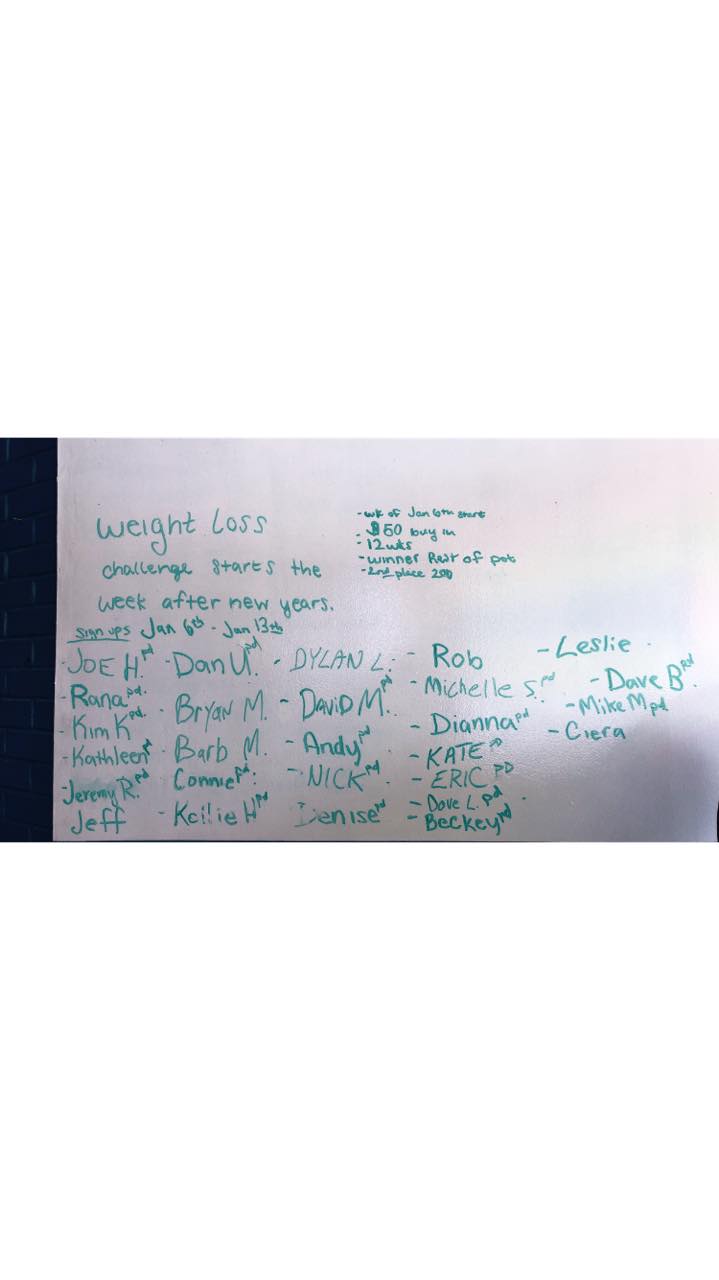 weight Loss
challenge starts the
week after new years.
sign ups Jan 6th - Jan 13th
- wk of Jan 6th start
- $50 buy in
- 12 wks
- winner Rest of pot
- 2nd place 200
- JOE H. pd
- Rana pd.
- Kim K pd.
- Kathleen pd
- Jeremy R. pd
Jeff
- Dan U. pd
- Bryan M.
- Barb M.
Connie pd.
- Keilie H pd
- DYLAN L.
- DAVID M. pd
- Andy pd
- NICK pd
Denise pd
- Rob
- Michelle S. pd
- Dianna pd
- KATE PD
- ERIC PD
- Dave L. pd
- Beckey pd
- Leslie
- Dave B pd
- Mike M pd
- Ciera